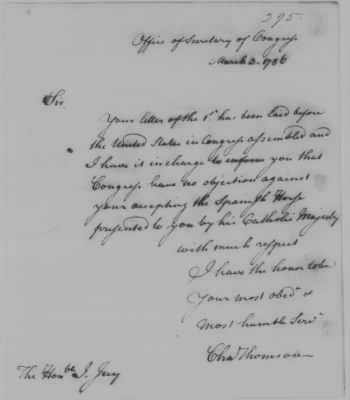 395.
Office of Secretary of Congress
March 2. 1786
Sir,
Your letter of the 1st has been laid before
the United States in Congress assembled and
I have it in charge to inform you that
Congress have no objection against
your accepting the Spanish Horse
presented to you by his Catholic Majesty
with much respect
I have the honor to be
Your most obedt &
most humble Servt
Chas Thomson
The Honble J. Jay